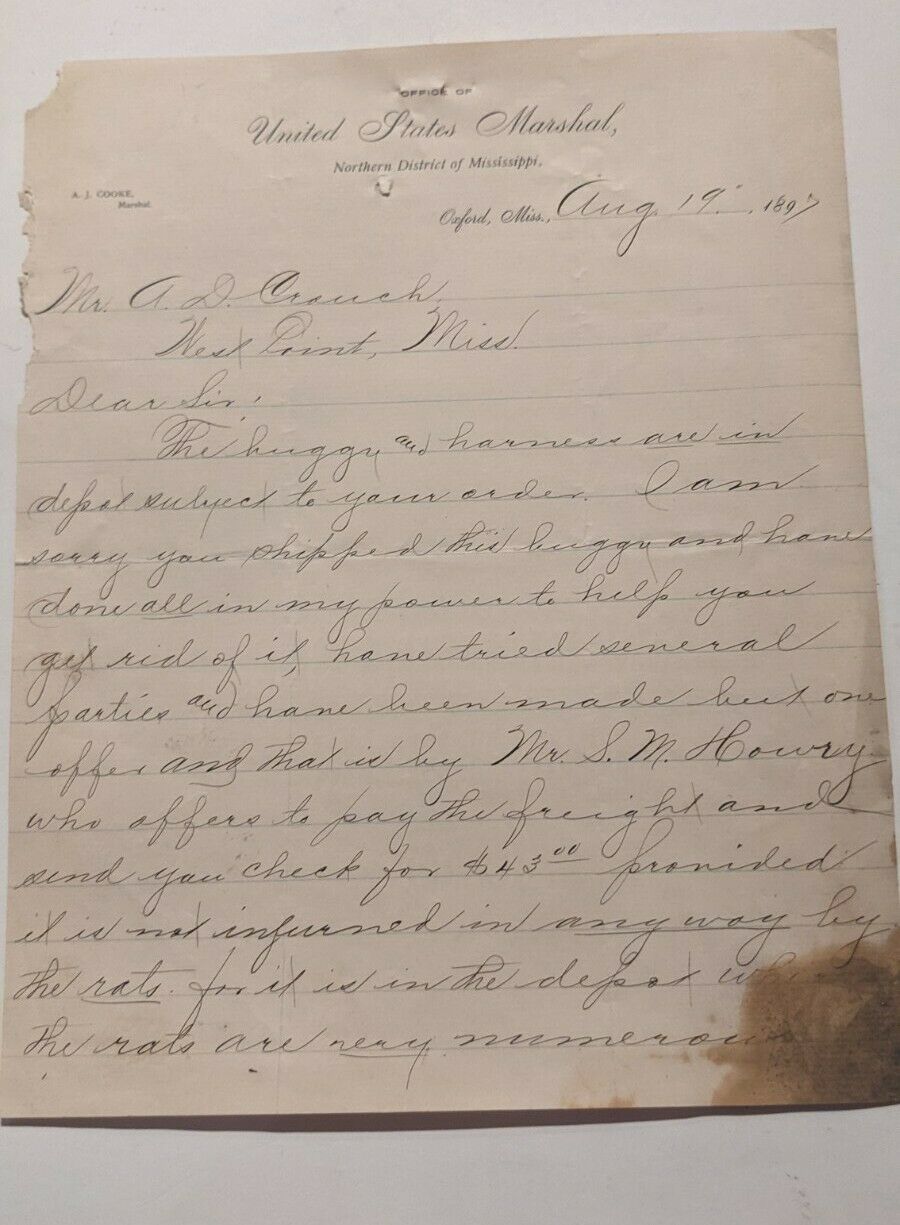 OFFICE OF
United States Marshal,
Northern District of Mississippi.
A. J. COOKE,
Marshal.
Oxford, Miss., Aug. 19", 1897
Mr. A. D. Crouch,
West Point, Miss.
Dear Sir:
The buggy and harness are in
depot subject to your order. I am
sorry you shipped this buggy and have
done all in my power to help you
get rid of it, have tried several
parties and have been made but one
offer and that is by Mr. S. M. Howry
who offers to pay the freight and
send you check for $43.00 provided
it is not injured in any way by
the rats. for it is in the depot
the rats are very numerous